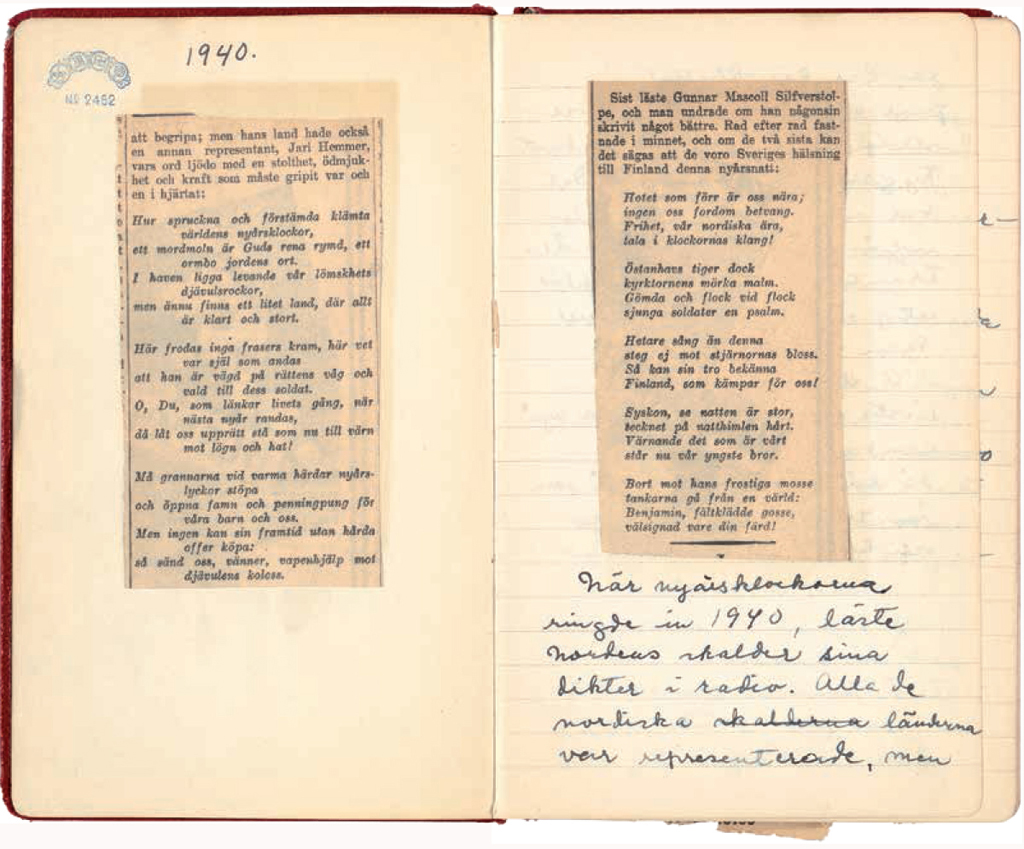 1940.
No 2462
att begripa; men hans land hade också
en annan representant, Jarl Hemmer,
vars ord ljödo med en stolthet, ödmjuk-
het och kraft som måste gripit var och
en i hjärtat:
Hur spruckna och förstämda klämta
världens nyårsklockor,
ett mordmoln är Guds rena rymd, ett
ormbo jordens ort.
I haven ligga levande vår lömskhets
djävulsrockor,
men ännu finns ett litet land, där allt
är klart och stort.
Här frodas inga frasers kram, här vet
var själ som andas
att han är vägd på rättens våg och
vald till dess soldat.
O, Du, som länkar livets gång, när
nästa nyår randas,
då låt oss upprätt stå som nu till värn
mot lögn och hat!
Må grannarna vid varma härdar nyårs-
lyckor stöpa
och öppna famn och penningpung för
våra barn och oss.
Men ingen kan sin framtid utan hårda
offer köpa:
så sänd oss, vänner, vapenhjälp mot
djävulens koloss.
Sist läste Gunnar Mascoll Silfverstol-
pe, och man undrade om han någonsin
skrivit något bättre. Rad efter rad fast-
nade i minnet, och om de två sista kan
det sägas att de voro Sveriges hälsning
till Finland denna nyårsnatt:
Hotet som förr är oss nära;
ingen oss fordom betvang.
Frihet, vår nordiska ära,
tala i klockornas klang!
Östanhavs tiger dock
kyrktornens mörka malm.
Gömda och flock vid flock
sjunga soldater en psalm.
Hetare sång än denna
steg ej mot stjärnornas bloss.
Så kan sin tro bekänna
Finland, som kämpar för oss!
Syskon, se natten är stor,
tecknet på natthimlen hårt.
Värnande det som är vårt
står nu vår yngste bror.
Bort mot hans frostiga mosse
tankarna gå från en värld:
Benjamin, fältklädde gosse,
välsignad vare din färd!
När nyårsklockorna
ringde in 1940, läste
Nordens skalder sina
dikter i radio. Alla de
nordiska skalderna länderna
var representerade, men